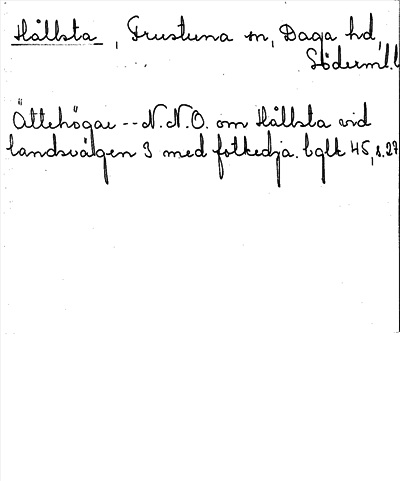 Hållsta, Frustuna sn, Daga hd,
Söderml.l
Ättehögar -- N.N.O. om Hållsta vid
landsvägen 3 med fotkedja. bglk 45, s.27